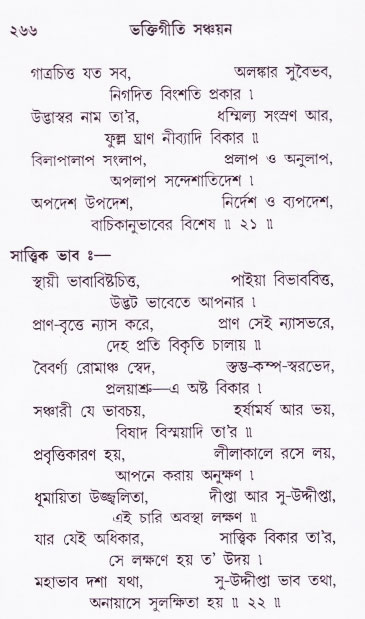 ২৬৬ ভক্তিগীতি সঞ্চয়ন
গাত্রচিত্ত যত সব, অলঙ্কার সুবৈভব,
নিগদিত বিংশতি প্রকার ।
উদ্ভাস্বর নাম তা'র, ধম্মিল্য সংস্রণ আর,
ফুল্ল ঘ্রাণ নীব্যাদি বিকার ॥
বিলাপালাপ সংলাপ, প্রলাপ ও অনুলাপ,
অপলাপ সন্দেশাতিদেশ ।
অপদেশ উপদেশ, নির্দেশ ও ব্যপদেশ,
বাচিকানুভাবের বিশেষ ॥ ২১ ॥
সাত্ত্বিক ভাব ঃ—
স্থায়ী ভাবাবিষ্টচিত্ত, পাইয়া বিভাববিত্ত,
উদ্ভট ভাবেতে আপনার ।
প্রাণ-বৃত্তে ন্যাস করে, প্রাণ সেই ন্যাসভরে,
দেহ প্রতি বিকৃতি চালায় ॥
বৈবর্ণ্য রোমাঞ্চ স্বেদ, স্তম্ভ-কম্প-স্বরভেদ,
প্রলয়াশ্রু—এ অষ্ট বিকার ।
সঞ্চারী যে ভাবচয়, হর্ষামর্ষ আর ভয়,
বিষাদ বিস্ময়াদি তা'র ॥
প্রবৃত্তিকারণ হয়, লীলাকালে রসে লয়,
আপনে করায় অনুক্ষণ ।
ধূমায়িতা উজ্জ্বলিতা, দীপ্তা আর সু-উদ্দীপ্তা,
এই চারি অবস্থা লক্ষণ ॥
যার যেই অধিকার, সাত্ত্বিক বিকার তা'র,
সে লক্ষণে হয় ত' উদয় ।
মহাভাব দশা যথা, সু-উদ্দীপ্তা ভাব তথা,
অনায়াসে সুলক্ষিতা হয় ॥ ২২ ॥